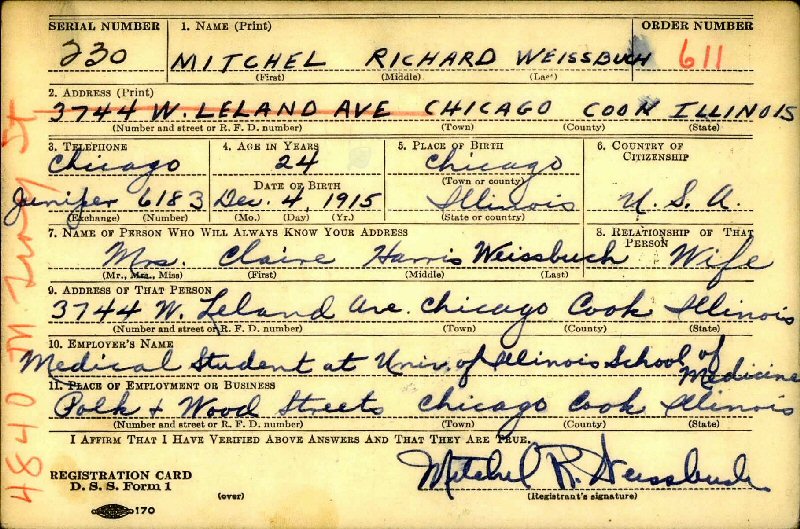 SERIAL NUMBER 1. NAME (Print) ORDER NUMBER
230 MITCHEL RICHARD WEISSBUCH 611
(First) (Middle) (Last)
2. ADDRESS (Print)
3744 W. LELAND AVE CHICAGO COOK ILLINOIS
(Number and street or R. F. D. number) (Town) (County) (State)
3. TELEPHONE 4. AGE IN YEARS 5. PLACE OF BIRTH 6. COUNTRY OF
CITIZENSHIP
Chicago 24 Chicago
DATE OF BIRTH (Town or county)
Juniper 6183 Dec. 4, 1915 Illinois U. S. A.
(Exchange) (Number) (Mo.) (Day) (Yr.) (State or country)
7. NAME OF PERSON WHO WILL ALWAYS KNOW YOUR ADDRESS 8. RELATIONSHIP OF THAT
PERSON
Mrs. Claire Harris Weissbuch Wife
(Mr., Mrs., Miss) (First) (Middle) (Last)
9. ADDRESS OF THAT PERSON
3744 W. Leland Ave. Chicago Cook Illinois
(Number and street or R. F. D. number) (Town) (County) (State)
10. EMPLOYER'S NAME
Medical Student at Univ. of Illinois School of
Medicine
11. PLACE OF EMPLOYMENT OR BUSINESS
Polk + Wood Streets Chicago Cook Illinois
(Number and street or R. F. D. number) (Town) (County) (State)
I AFFIRM THAT I HAVE VERIFIED ABOVE ANSWERS AND THAT THEY ARE TRUE.
Mitchel R. Weissbuch
REGISTRATION CARD
D. S. S. Form 1 (over) (Registrant's signature)
170
4840 St